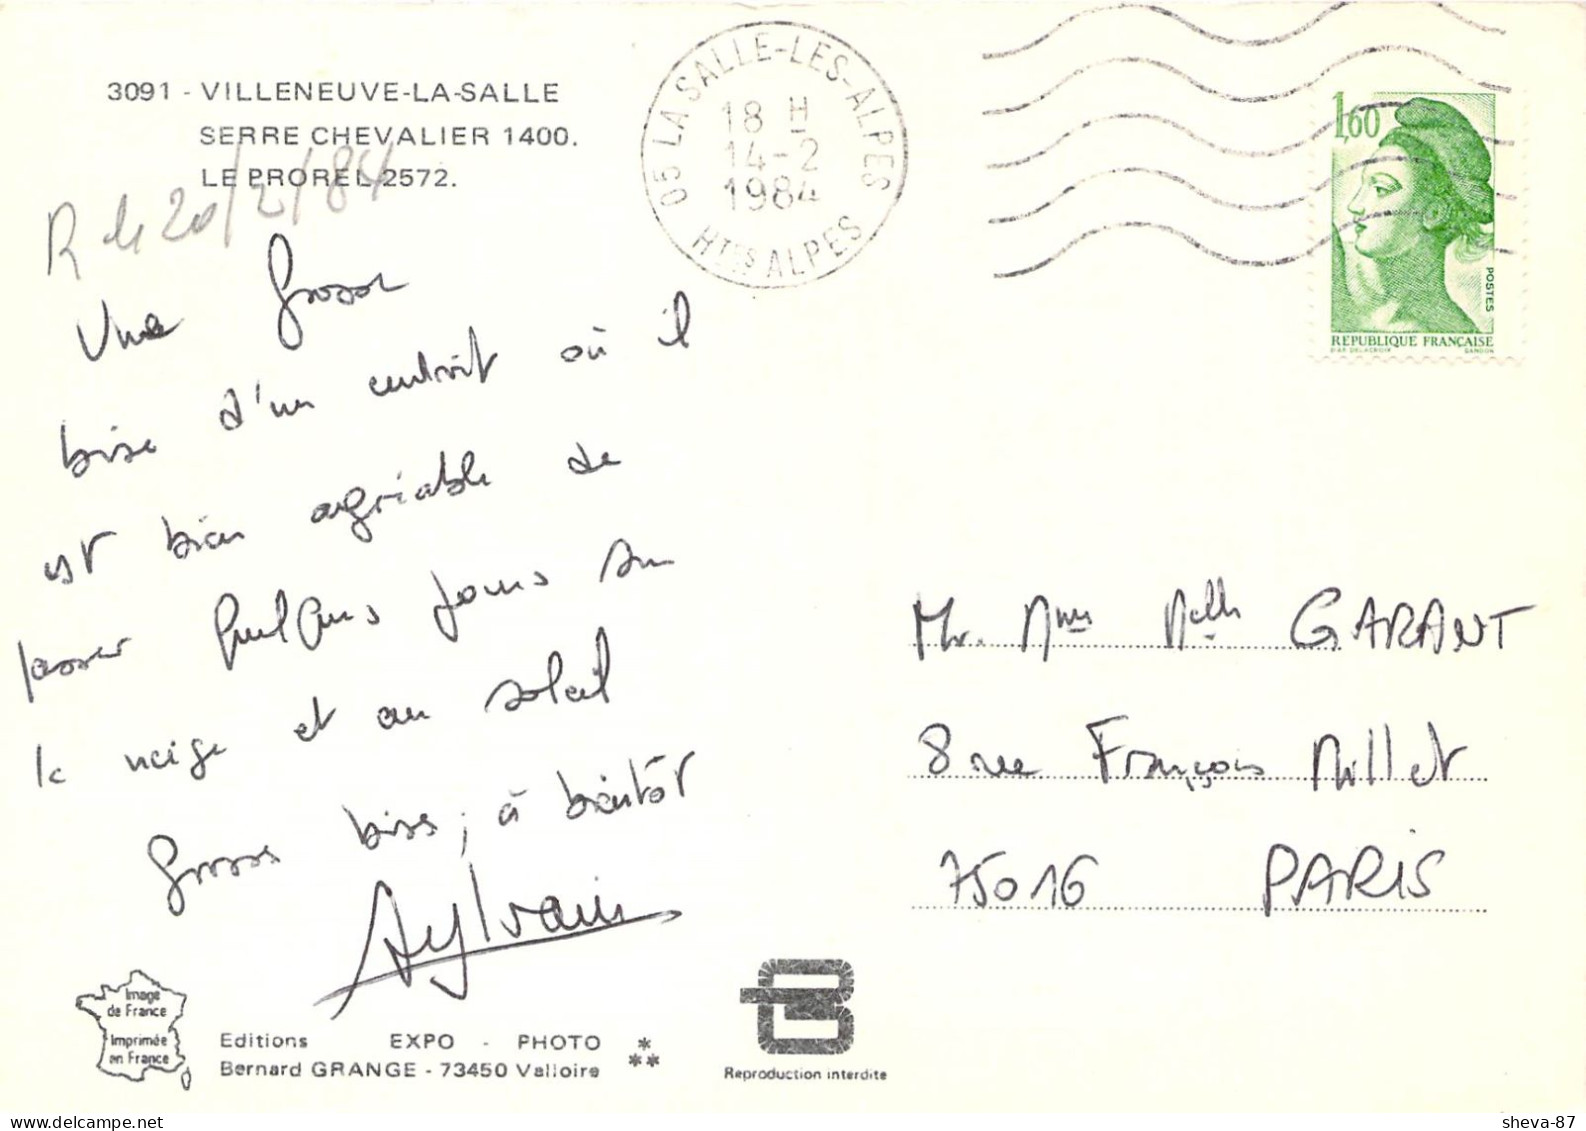 3091 - VILLENEUVE-LA-SALLE
SERRE CHEVALIER 1400.
LE PROREL 2572.
R le 20/2/84
Une grosse
bise d'un endroit où il
est bien agréable de
passer quelques jours sur
la neige et au soleil
Grosses bises, à bientôt
Sylvain
05 LA SALLE-LES-ALPES
18 H
14-2
1984
HTES ALPES
1,60
POSTES
RÉPUBLIQUE FRANÇAISE
D'AP. DELACROIX GANDON
Mr. Mme Melle GARANT
8 rue François Millet
75016 PARIS
Image
de France
Imprimée
en France
Editions EXPO - PHOTO
Bernard GRANGE - 73450 Valloire
Reproduction interdite
sheva-87